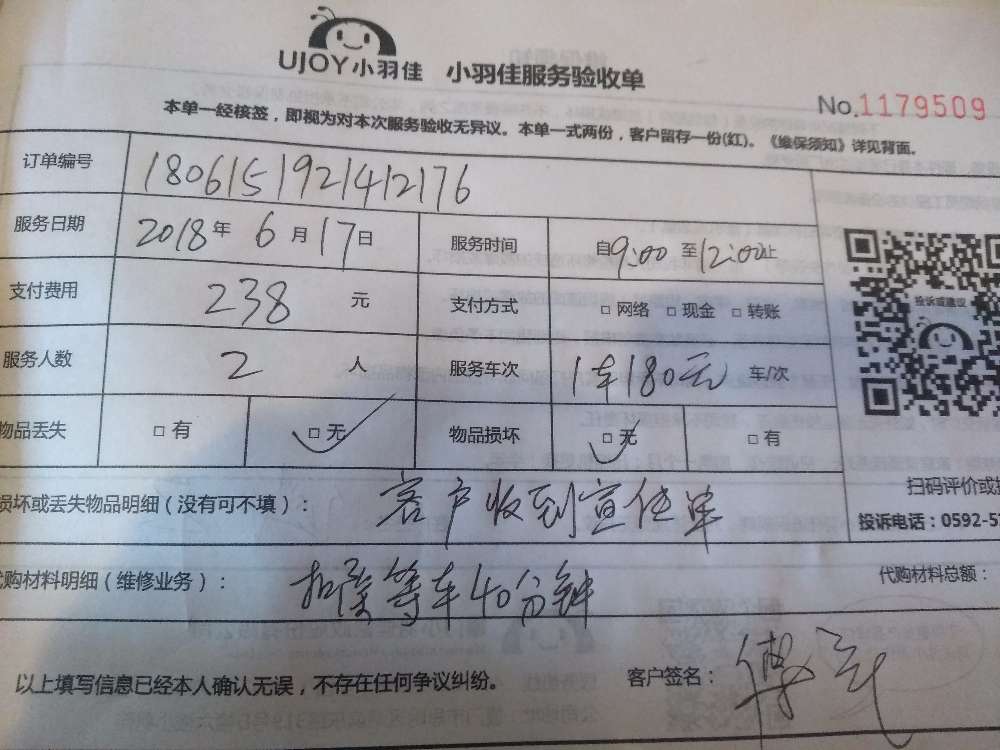 UJOY小羽佳 小羽佳服务验收单
No.1179509
本单一经核签，即视为对本次服务验收无异议。本单一式两份，客户留存一份(红)。《维保须知》详见背面。
订单编号 180615192142176
服务日期 2018年6月17日 服务时间 自9:00至12:00止
支付费用 238 元 支付方式 □网络 □现金 □转账
投诉或建议
服务人数 2 人 服务车次 1车180元 车/次
物品丢失 □有 □无 物品损坏 □无 □有
损坏或丢失物品明细（没有可不填）： 客户收到宣传单
扫码评价或
投诉电话：0592-5
代购材料明细（维修业务）： 扣除等车40分钟
代购材料总额：
以上填写信息已经本人确认无误，不存在任何争议纠纷。 客户签名：